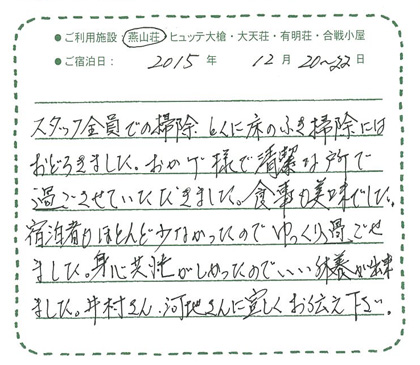 ● ご利用施設：燕山荘 ヒュッテ大槍・大天荘・有明荘・合戦小屋
● ご宿泊日： 2015 年 12 月 20〜22 日
スタッフ全員での掃除、とくに床のふき掃除には
おどろきました。おかげ様で清潔な所で
過ごさせていただきました。食事も美味でした。
宿泊者もほとんど少なかったのでゆっくり過ごせ
ました。身心共 がしかったのでいい休養が出来
ました。井村さん、河地さんに宜しくお伝え下さい。